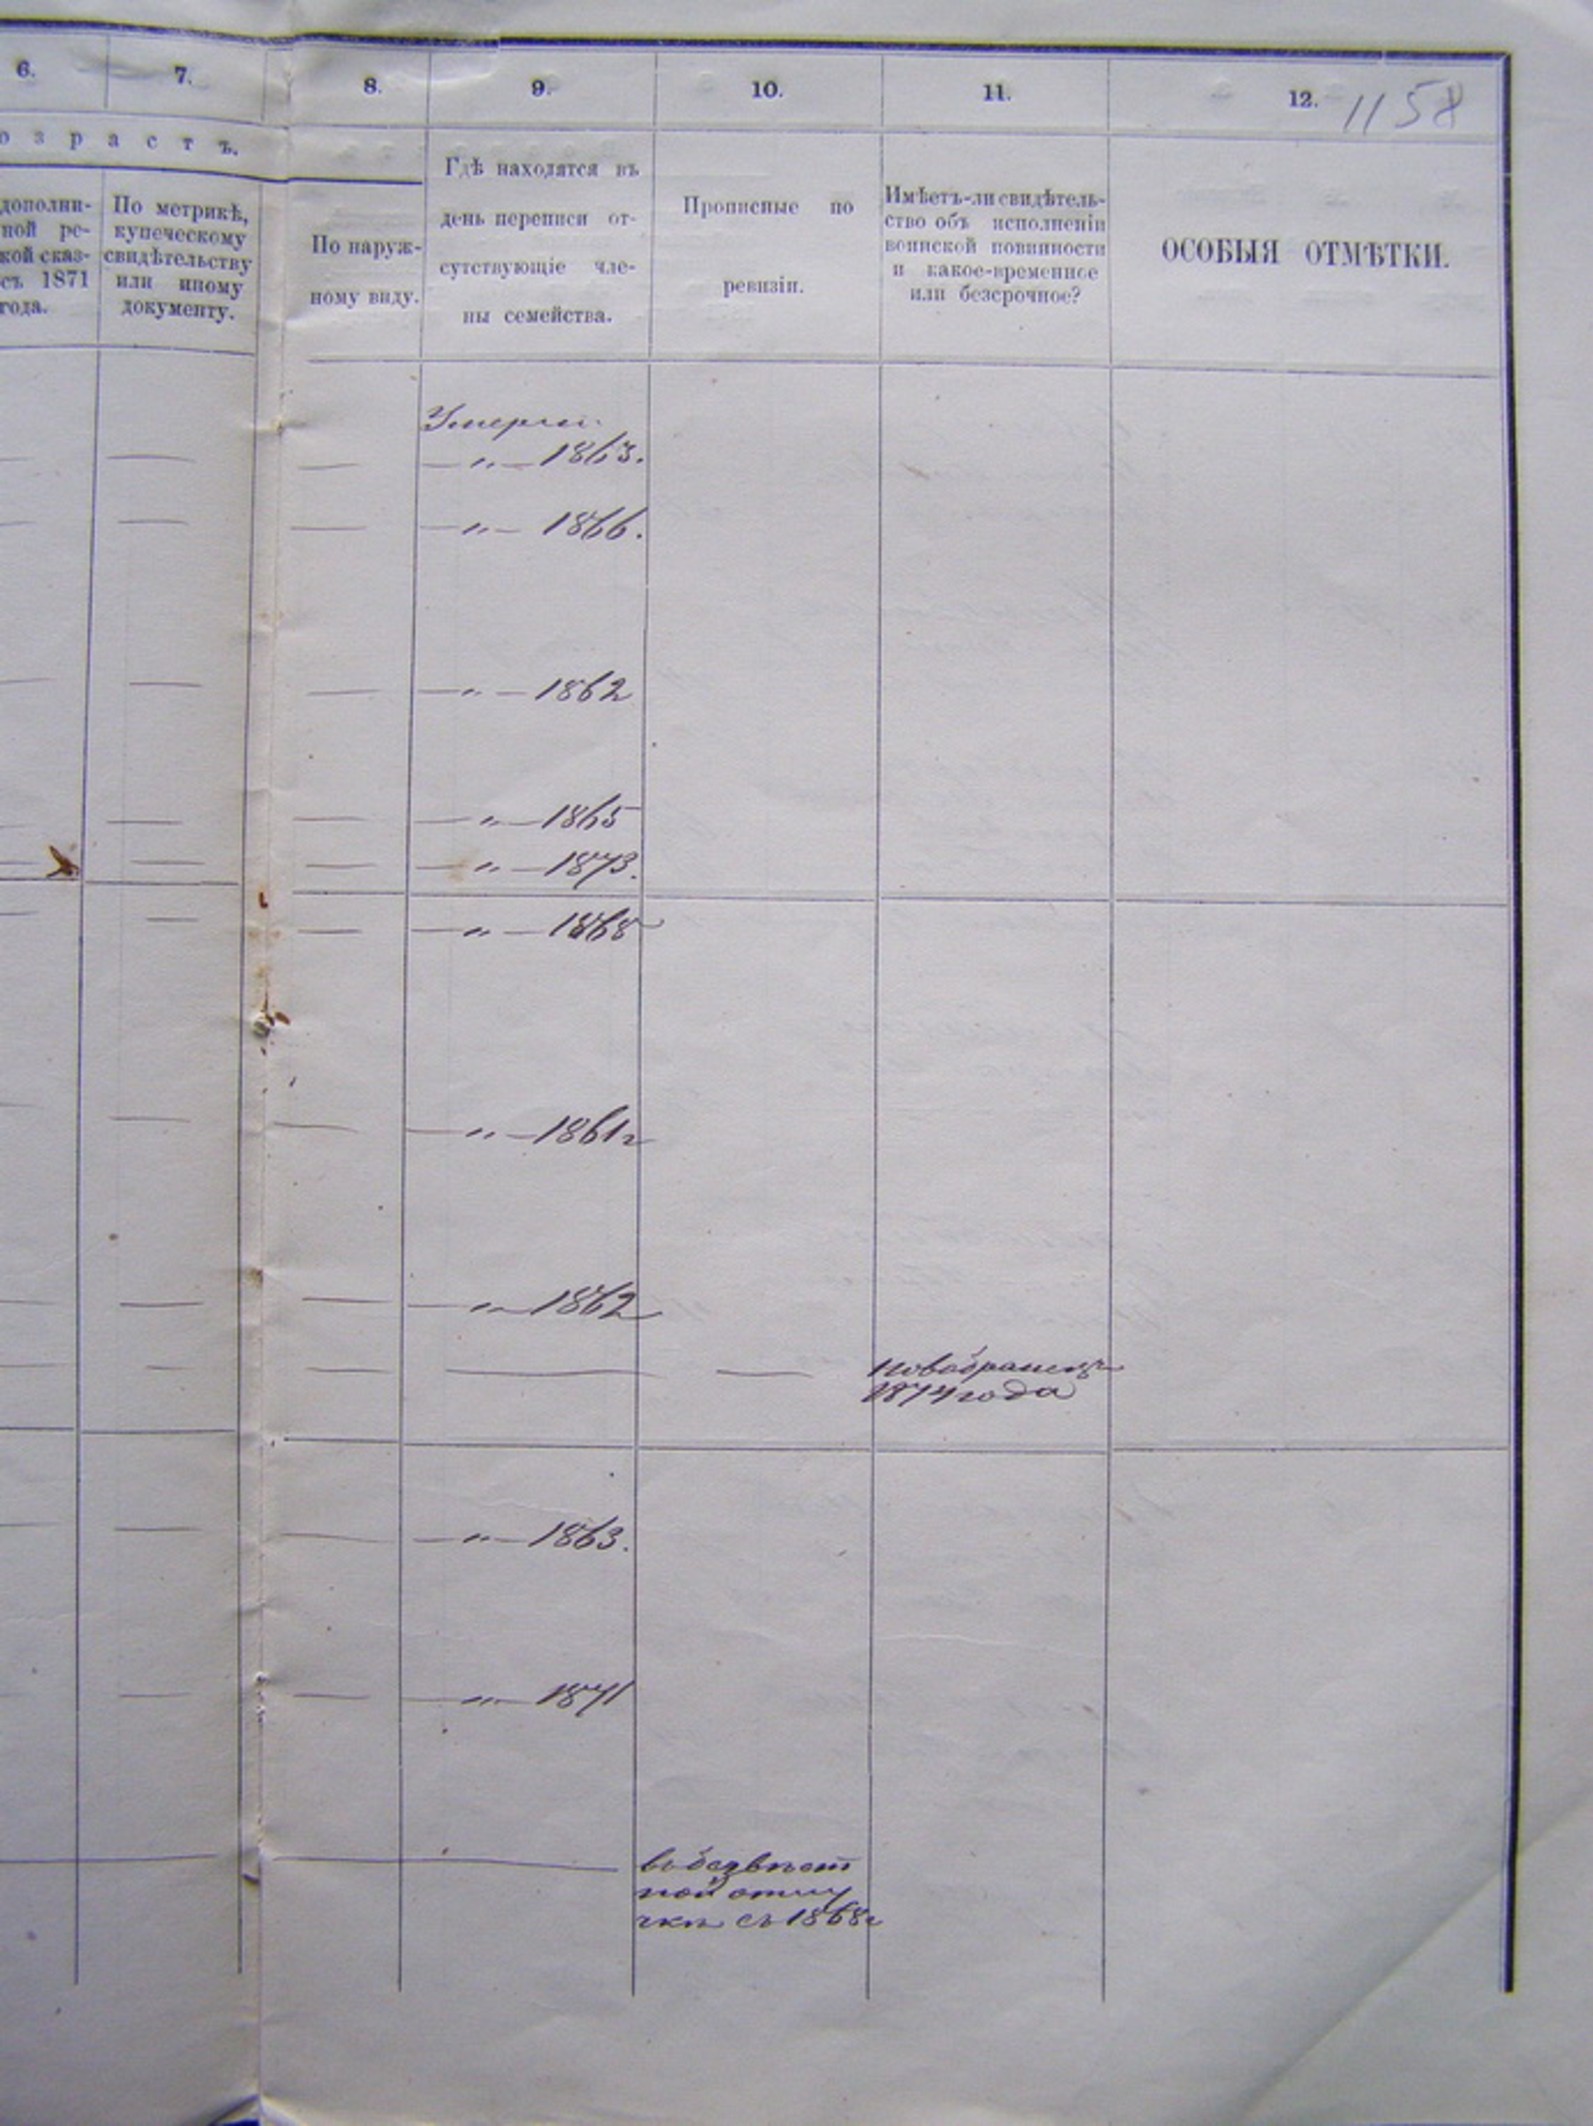 6. 7. 8. 9. 10. 11. 12. 1158
о з р а с т ъ.
дополни-
ной ре-
кой сказ-
съ 1871
года.
По метрикѣ,
купеческому
свидѣтельству
или иному
документу.
По наруж-
ному виду.
Гдѣ находятся въ
день переписи от-
сутствующіе чле-
ны семейства.
Прописные по
ревизіи.
Имѣетъ-ли свидѣтель-
ство объ исполненіи
воинской повинности
и какое-временное
или безсрочное?
ОСОБЫЯ ОТМѢТКИ.
Умерли
— — — — „ — 1863.
— — — — „ — 1866.
— — — — „ — 1862
— — — — „ — 1865
— — — — „ — 1873.
— — — — „ — 1868
— — — — „ — 1861г
— — — — „ — 1862
— — — — — новобранецъ
1874 года
— — — — „ — 1863.
— — — — „ — 1871
— въ безвѣст
ной отлу
чкѣ съ 1868г